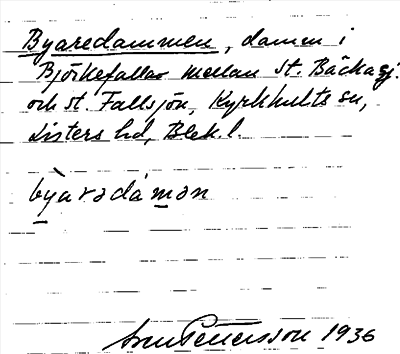 Byaredammen, damm i
Björkefallas mellan St. Bäckasj.
och St. Fallsjön, Kyrkhults sn,
Listers hd, Blek. l.
bỳaradámən
Sven Petersson 1936